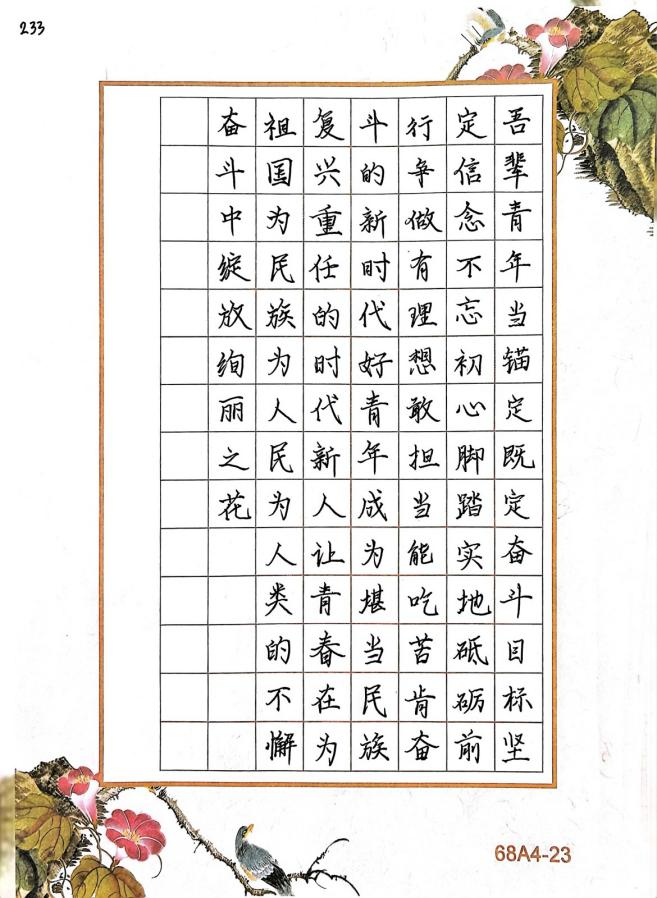 233
吾辈青年当锚定既定奋斗目标坚
定信念不忘初心脚踏实地砥砺前
行争做有理想敢担当能吃苦肯奋
斗的新时代好青年成为堪当民族
复兴重任的时代新人让青春在为
祖国为民族为人民为人类的不懈
奋斗中绽放绚丽之花
68A4-23